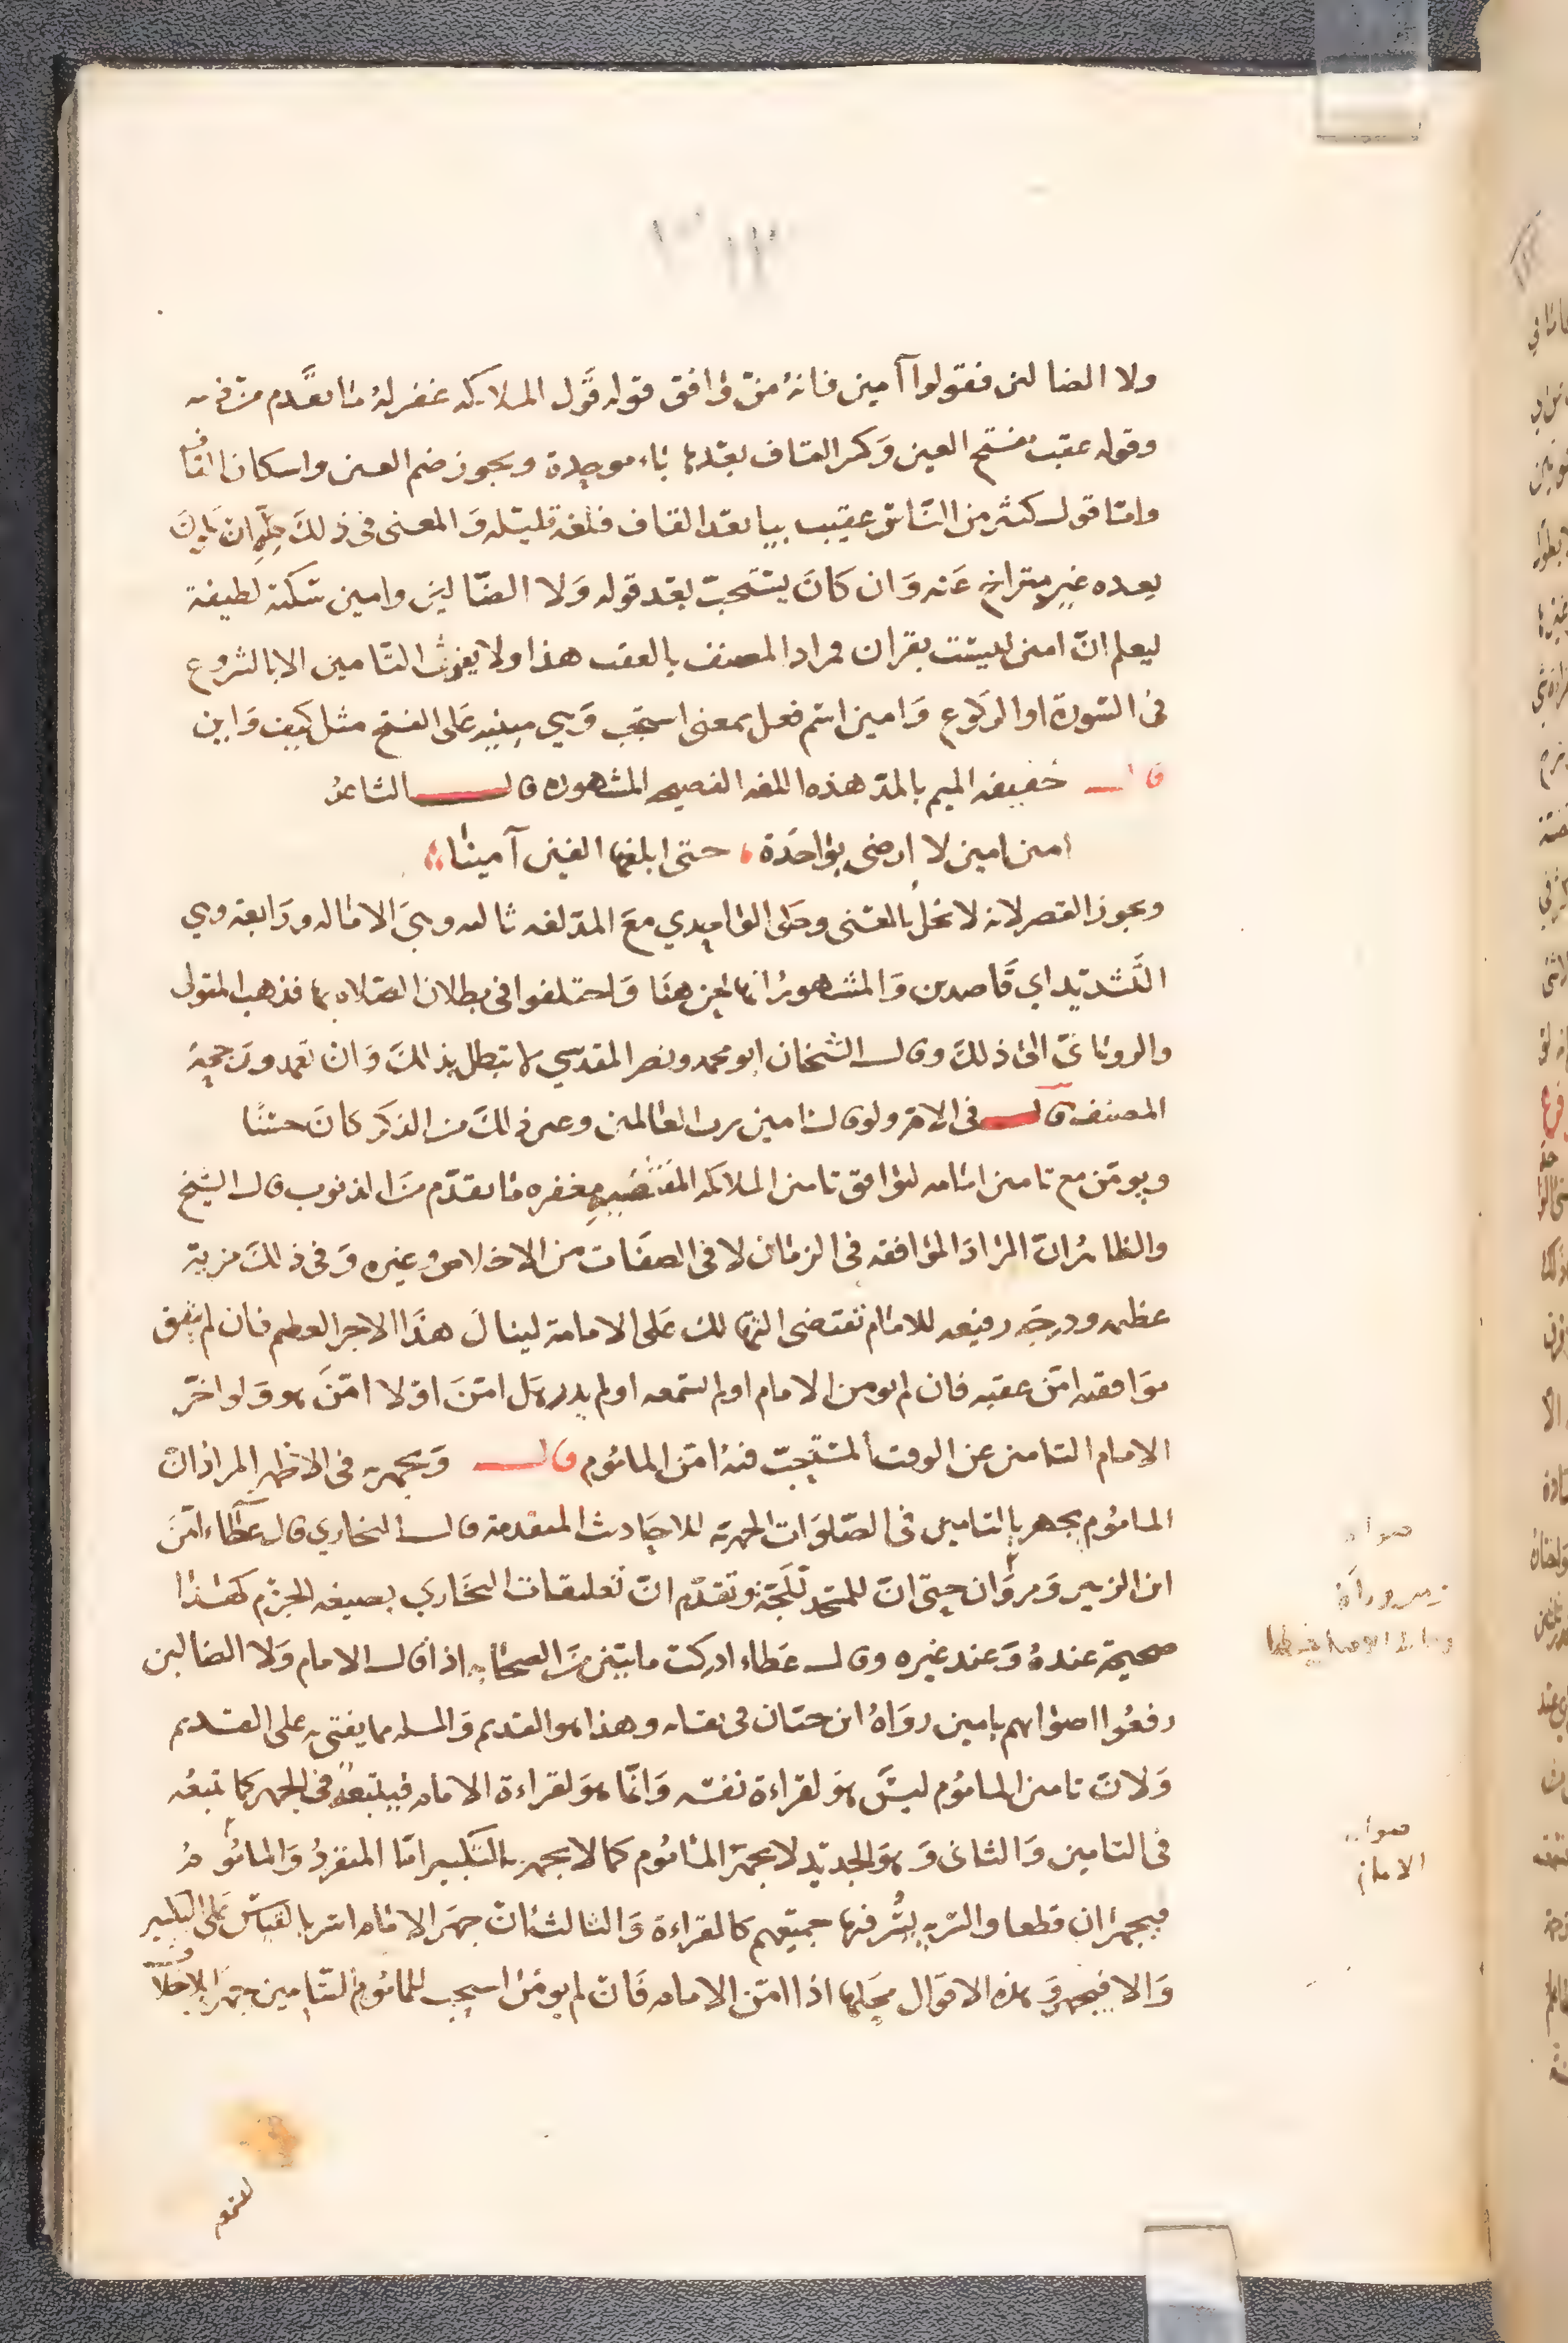 ولا الضالين فقولوا آمين فانه من وافق قوله قول الملايكه غفر له ما تقدم من ذنبه
وقوله عقب بفتح العين وكسر القاف بعدها باء موحدة ويجوز ضم العين واسكان القاف
واما قول كثير من الناس عقيب بيا بعد القاف فلغة قليله والمعنى في ذلك كله ان يكون
بعده غير متراخ عنه وان كان يستحب بعد قوله ولا الضالين وامين سكتة لطيفة
ليعلم ان امين ليست بقران فمراد المصنف بالعقب هذا ولا يفوت التامين الا بالشروع
في السورة او الركوع وامين اسم فعل بمعنى استجب وهي مبنيه على الفتح مثل كيف واين
قال خفيفه الميم بالمد هذه اللغه الفصيحه المشهوره قال الشاعر
امين امين لا ارضى بواحدة حتى ابلغها الفين آمينا
ويجوز القصر لانه لا يخل بالمعنى وحكى الواحدي مع المد لغه ثالثه وهي الاماله ورابعة وهي
التشديد اي قاصدين والمشهور انها لحن هنا واختلفوا في بطلان الصلاه بها فذهب المتولي
والروياني الى ذلك وقال الشيخان ابو محمد ونصر المقدسي لا تبطل بذلك وان تعمد ورجحه
المصنف قال في الام ولو قال امين رب العالمين وغير ذلك من الذكر كان حسنا
ويومن مع تامين امامه ليوافق تامين الملائكه المقتضيه مغفره ما تقدم من الذنوب قال الشيخ
والظاهر ان المراد الموافقه في الزمان لا في الصفات من الاخلاص وغيره وفي ذلك مزية
عظيمه ودرجه رفيعه للامام تقتضي التهالك على الامامة لينال هذا الاجر العظيم فان لم يتفق
موافقته امن عقبه فان لم يومن الامام او لم يسمعه او لم يدر هل امن او لا امن هو ولو اخر
الامام التامين عن الوقت المستحب فيه امن الماموم قال ويجهر به في الاظهر المراد ان
الماموم يجهر بالتامين في الصلوات الجهرية للاحاديث المتقدمة قال البخاري قال عطاء امن
ابن الزبير ومروان حتى ان للمسجد للجة وتقدم ان تعليقات البخاري بصيغه الجزم كهذا
صحيحة عنده وعند غيره وقال عطاء ادركت مايتين من الصحابه اذا قال الامام ولا الضالين
رفعوا اصواتهم بامين رواه ابن حبان في ثقاته وهذا هو القديم والمسله مما يفتى به على القديم
ولان تامين الماموم ليس هو لقراءة نفسه وانما هو لقراءة الامام فيتبعه في الجهر كما تبعه
في التامين والثاني وهو الجديد لا يجهر الماموم كما لا يجهر بالتكبير اما المنفرد والماموم
فيجهران قطعا والسريه يسر فيها جميعهم كالقراءة والثالث ان جهر الامام اسر بالقياس على التكبير
والا فيجهر وهذه الاقوال محلها اذا امن الامام فان لم يومن استحب للماموم التامين جهرا بلا خلاف
صوابه
صوابه
الامام